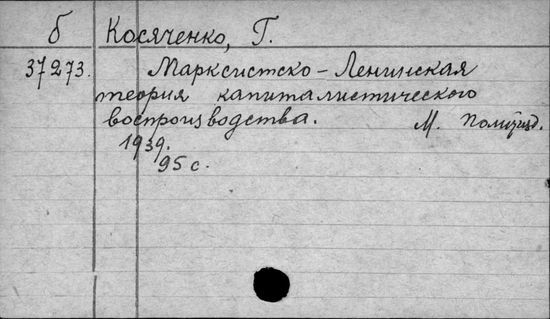 б Косяченко, Г.
37273. Марксистско-Ленинская
теория капиталистического
воспроизводства. М. Политизд.
1939.
95 с.